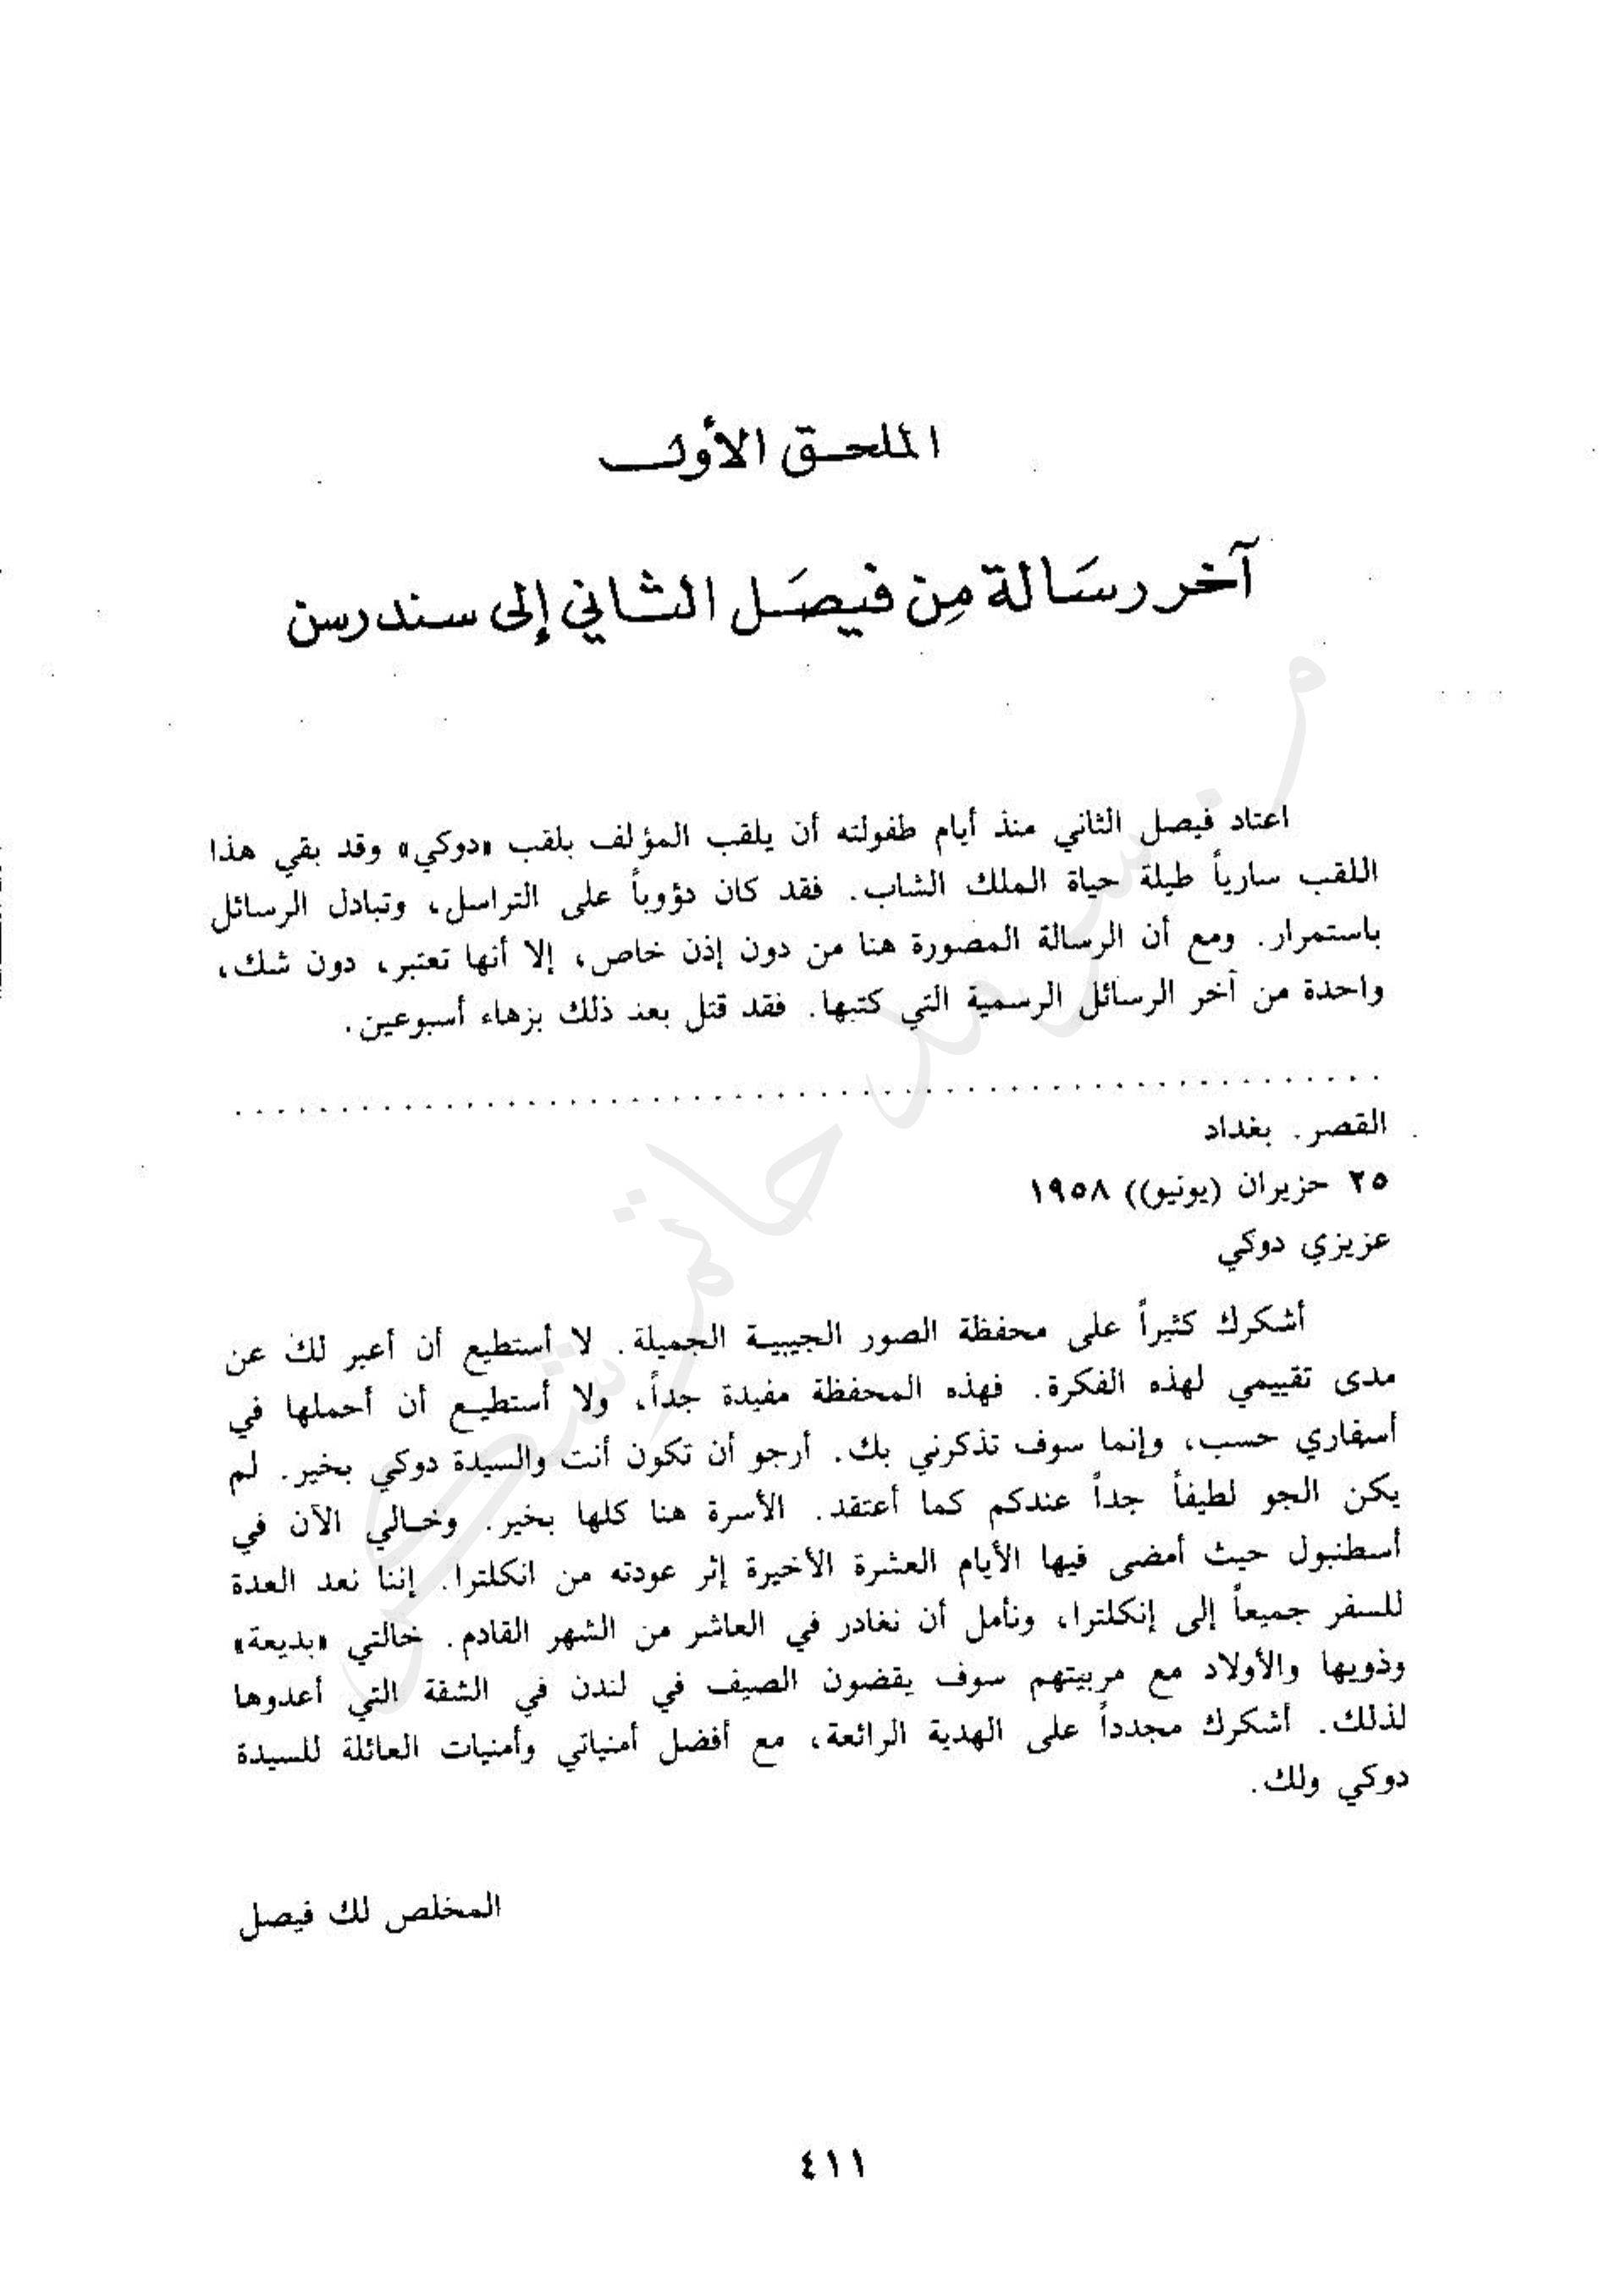 الملحق الأول
آخر رسَالة مِن فيصَل الثاني إلى سندرسن
اعتاد فيصل الثاني منذ أيام طفولته أن يلقب المؤلف بلقب «دوكي» وقد بقي هذا
اللقب سارياً طيلة حياة الملك الشاب. فقد كان دؤوباً على التراسل، وتبادل الرسائل
باستمرار. ومع أن الرسالة المصورة هنا من دون إذن خاص، إلا أنها تعتبر، دون شك،
واحدة من آخر الرسائل الرسمية التي كتبها. فقد قتل بعد ذلك بزهاء أسبوعين.
القصر. بغداد
٢٥ حزيران (يونيو)) ١٩٥٨
عزيزي دوكي
أشكرك كثيراً على محفظة الصور الجيبية الجميلة. لا أستطيع أن أعبر لك عن
مدى تقييمي لهذه الفكرة. فهذه المحفظة مفيدة جداً، ولا أستطيع أن أحملها في
أسفاري حسب، وإنما سوف تذكرني بك. أرجو أن تكون أنت والسيدة دوكي بخير. لم
يكن الجو لطيفاً جداً عندكم كما أعتقد. الأسرة هنا كلها بخير. وخالي الآن في
أسطنبول حيث أمضى فيها الأيام العشرة الأخيرة إثر عودته من انكلترا. إننا نعد العدة
للسفر جميعاً إلى إنكلترا، ونأمل أن نغادر في العاشر من الشهر القادم. خالتي «بديعة»
وذويها والأولاد مع مربيتهم سوف يقضون الصيف في لندن في الشقة التي أعدوها
لذلك. أشكرك مجدداً على الهدية الرائعة، مع أفضل أمنياتي وأمنيات العائلة للسيدة
دوكي ولك.
المخلص لك فيصل
٤١١